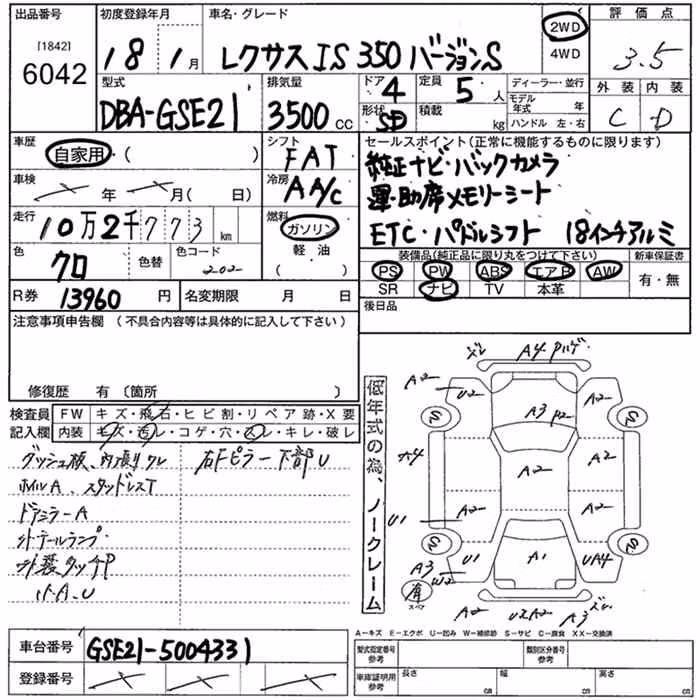 出品番号 初度登録年月 車名・グレード 2WD 評価点
[1842]
6042
18 1月 レクサスIS 350 バージョンS 4WD 3.5
型式 排気量 ドア 4 定員 5人 ディーラー・並行 外装 内装
DBA-GSE21 3500 CC 形状 SD 積載 kg モデル年式 年 C D
ハンドル 左・右
車歴 自家用・( ) シフト FAT セールスポイント(正常に機能するものに限ります)
純正ナビ・バックカメラ
車検 年 月( 日) 冷房 AA/C 運・助席メモリーシート
走行 10万2千773 km 燃料 ガソリン ETC・パドルシフト 18インチアルミ
軽・油
( )
色 クロ 色替 色コード 202 装備品(純正品に限り丸をつけて下さい) 新車保証書
PS PW ABS エアB AW 有・無
SR ナビ TV 本革
R券 13960 円 名変期限 月 日 後日品
注意事項申告欄 (不具合内容等は具体的に記入して下さい)
修復歴 有(箇所 )
検査員 FW キズ・飛石・ヒビ割・リペア跡・X要
記入欄 内装 キズ・汚レ・コゲ・穴・スレ・キレ・破レ
ダッシュ板、内張りクレ 右Fピラー下部U
ホイルA、スタッドレスT
ドアミラーA
外装タッチP
小A、U
低年式の為、ノークレーム
ズレ A4 Pハゲ
A2 U2 A2
A3 P2
A4 A2 A2
U1 A2 A2
U1 A1 UA4
A3 W2
スペア
A2 U2A2 A3 ズレ
A-キズ E-エクボ U-凹み W-補修跡 S-サビ C-腐食 XX-交換済
車台番号 GSE21-5004331 型式指定番号 参考 類別区分番号 参考
登録番号 車庫証明用 参考 長さ cm 幅 cm 高さ cm